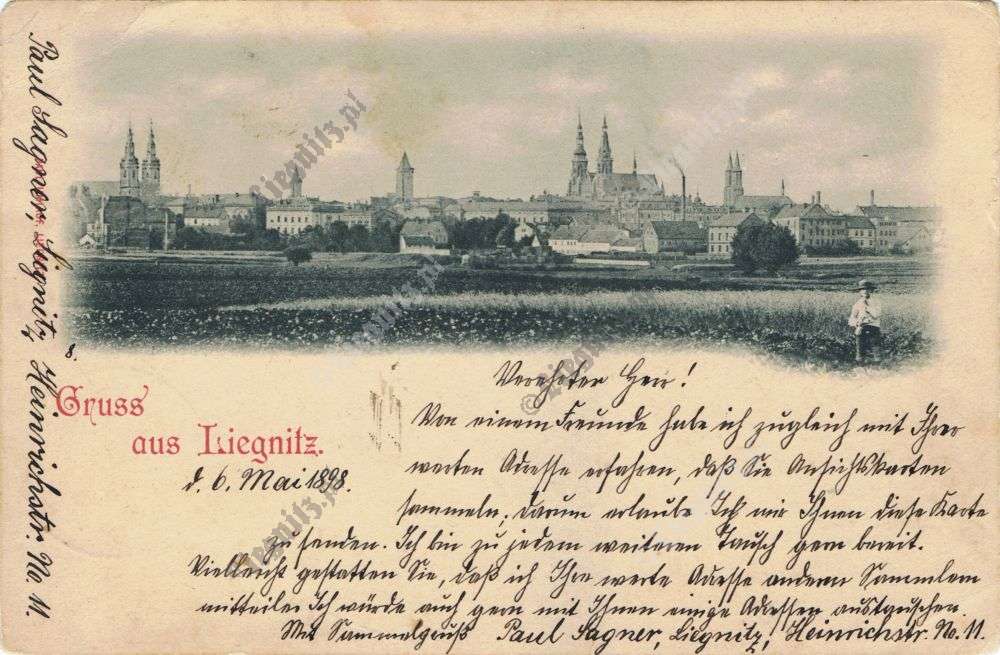 Gruss
aus Liegnitz.
d. 6. Mai 1898.
Verehrter Herr!
Von einem Freunde habe ich zugleich mit Ihrer
werten Adresse erfahren, daß Sie Ansichtskarten
sammeln, darum erlaube Ich mir Ihnen diese Karte
zu senden. Ich bin zu jedem weiteren Tausch gern bereit.
Vielleicht gestatten Sie, daß ich Ihre werte Adresse andern Sammlern
mitteile. Ich würde auch gern mit Ihnen einige Adressen austauschen.
Mit Sammelgruß Paul Sagner, Liegnitz, Heinrichstr. No. 11.
Paul Sagner, Liegnitz Heinrichstr. No. 11.
8.
Liegnitz.pl
Liegnitz.pl
© Liegnitz.pl
Liegnitz.pl